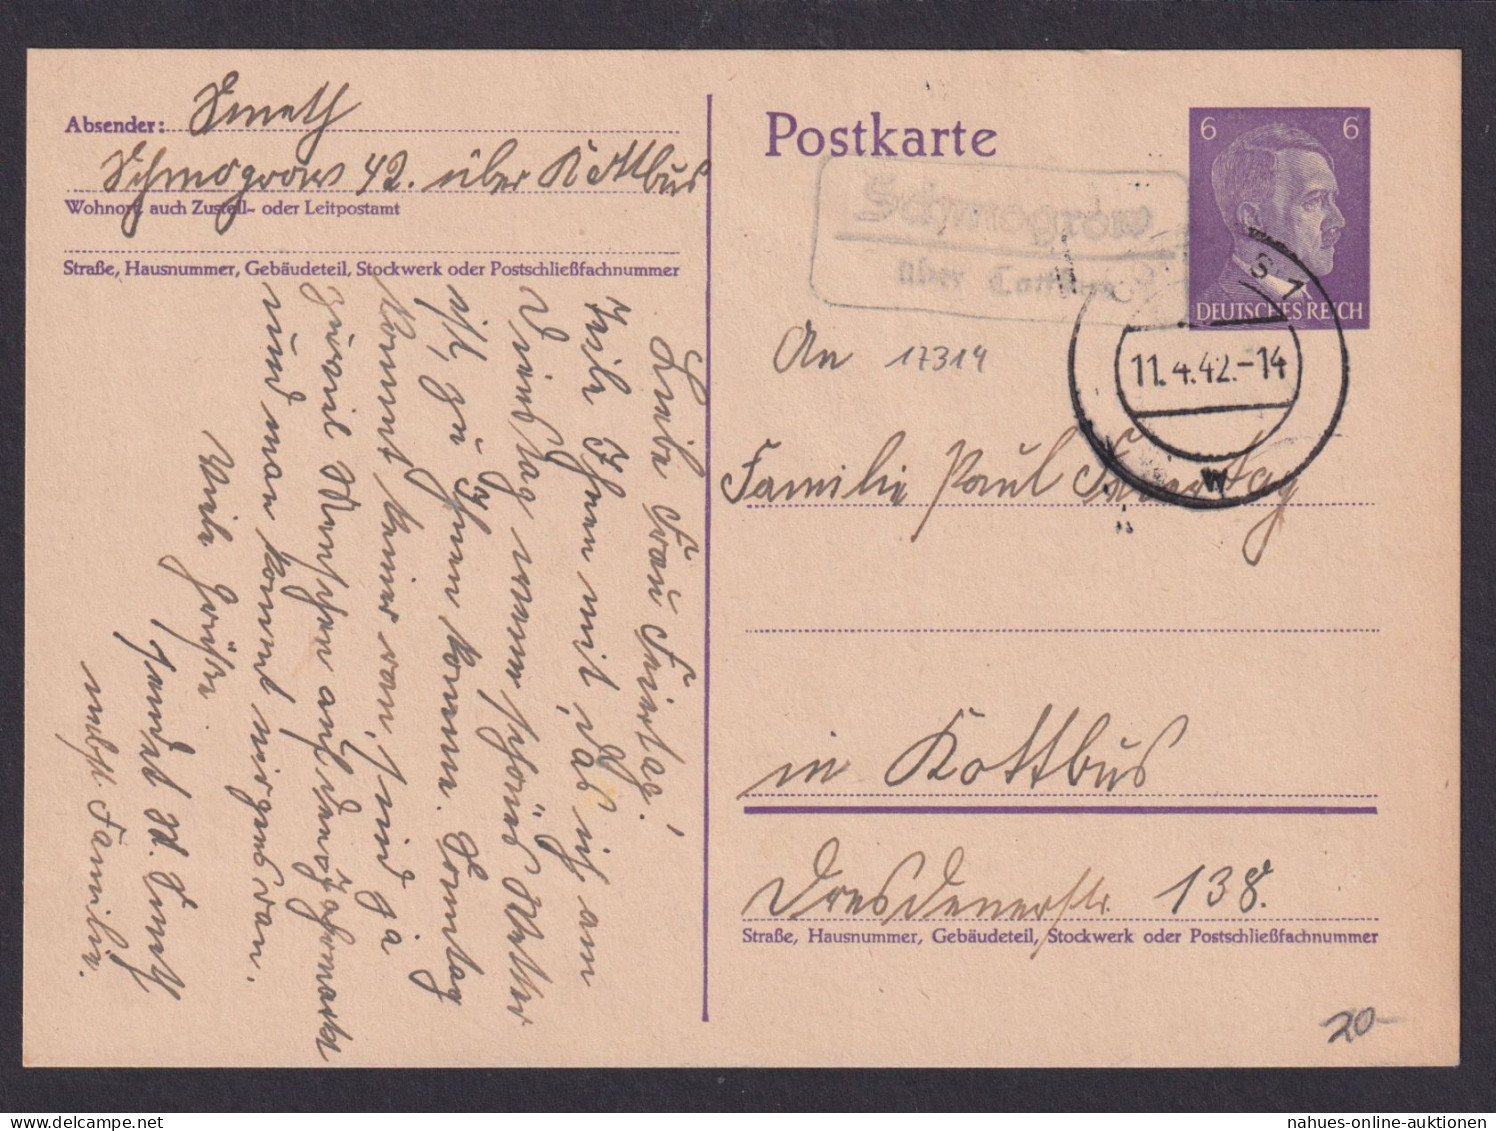 Absender: Smeth
Schmogrow 42. über Kottbus
Wohnort, auch Zustell- oder Leitpostamt
Straße, Hausnummer, Gebäudeteil, Stockwerk oder Postschließfachnummer
Liebe Frau Feiertag!
Teile Ihnen mit, das ich am
Dienstag wenn schönes Wetter
ist, zu Ihnen komme. Sonntag
kommt keiner ran, sind ja
zuviel Menschen auf den
und man kommt nirgens ran.
Viele Grüße
sendet
nebst Familie.
Postkarte
6 6
DEUTSCHES REICH
Schmogrow
über Cottbus
11.4.42.-14
An 17314
Familie Paul Feiertag
in Kottbus
Dresdenerstr. 138.
Straße, Hausnummer, Gebäudeteil, Stockwerk oder Postschließfachnummer
20-
nahues-online-auktionen